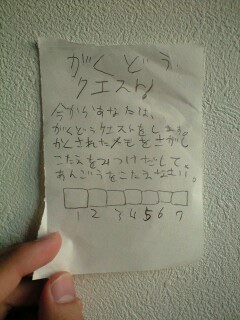 がくどう
クエスト
今からすなたは、
がくどうクエストをします。
かくされたメモをさがし
こたえをみつけだして。
あんごうをこたえなさい。
1 2 3 4 5 6 7